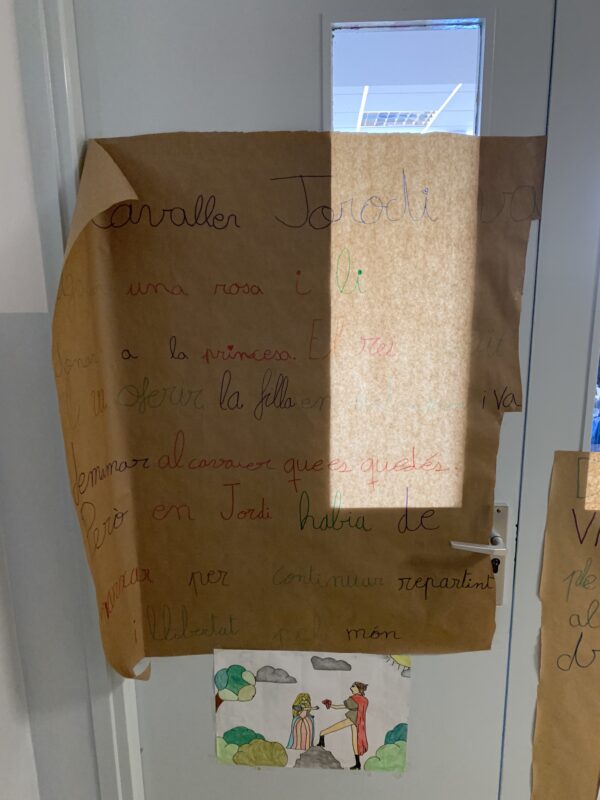 cavaller Jorodi va
una rosa i li
a la princesa. El rei
li va oferir la filla en i va
demamar al cavaler que es quedés.
Però en Jordi havia de
marxar per continuar repartint
i llibertat pel món
VI
ple
al
dr